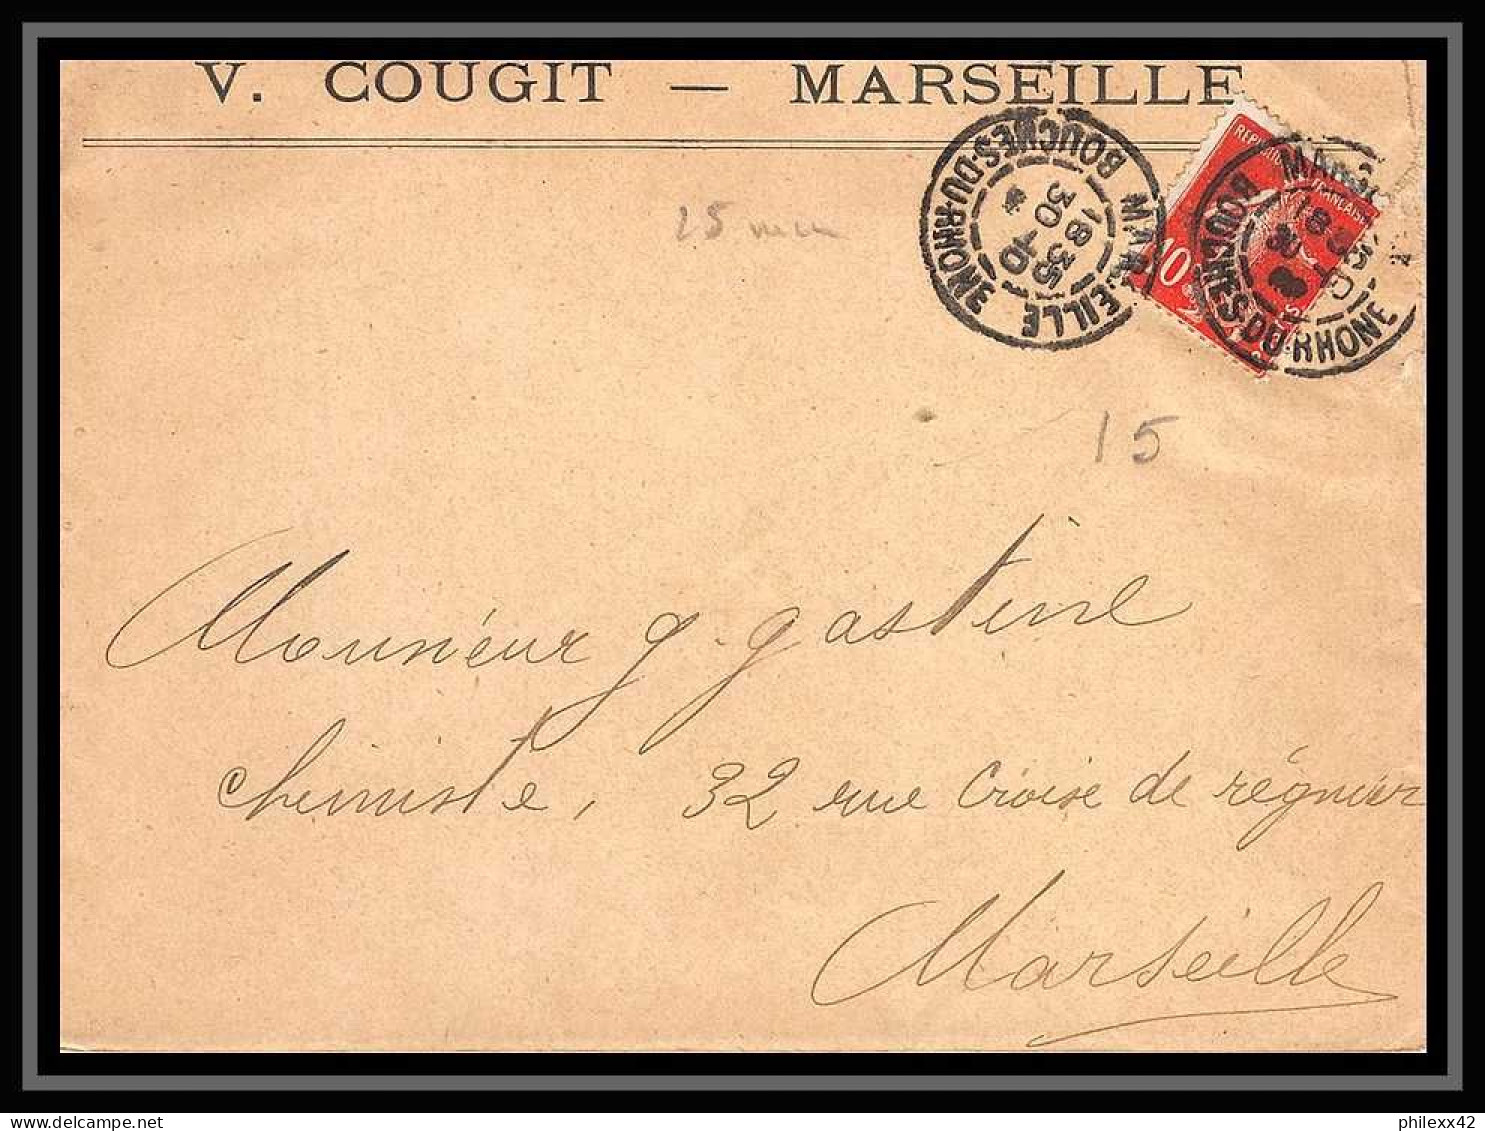 V. COUGIT — MARSEILLE
MARSEILLE
18 35
30
10
BOUCHES-DU-RHONE
REPUBLIQUE FRANÇAISE
10c
MARSEILLE
18 35
BOUCHES-DU-RHONE
15
Monsieur G. Gastine
chimiste, 32 rue Croise de régnier
Marseille
philexx42